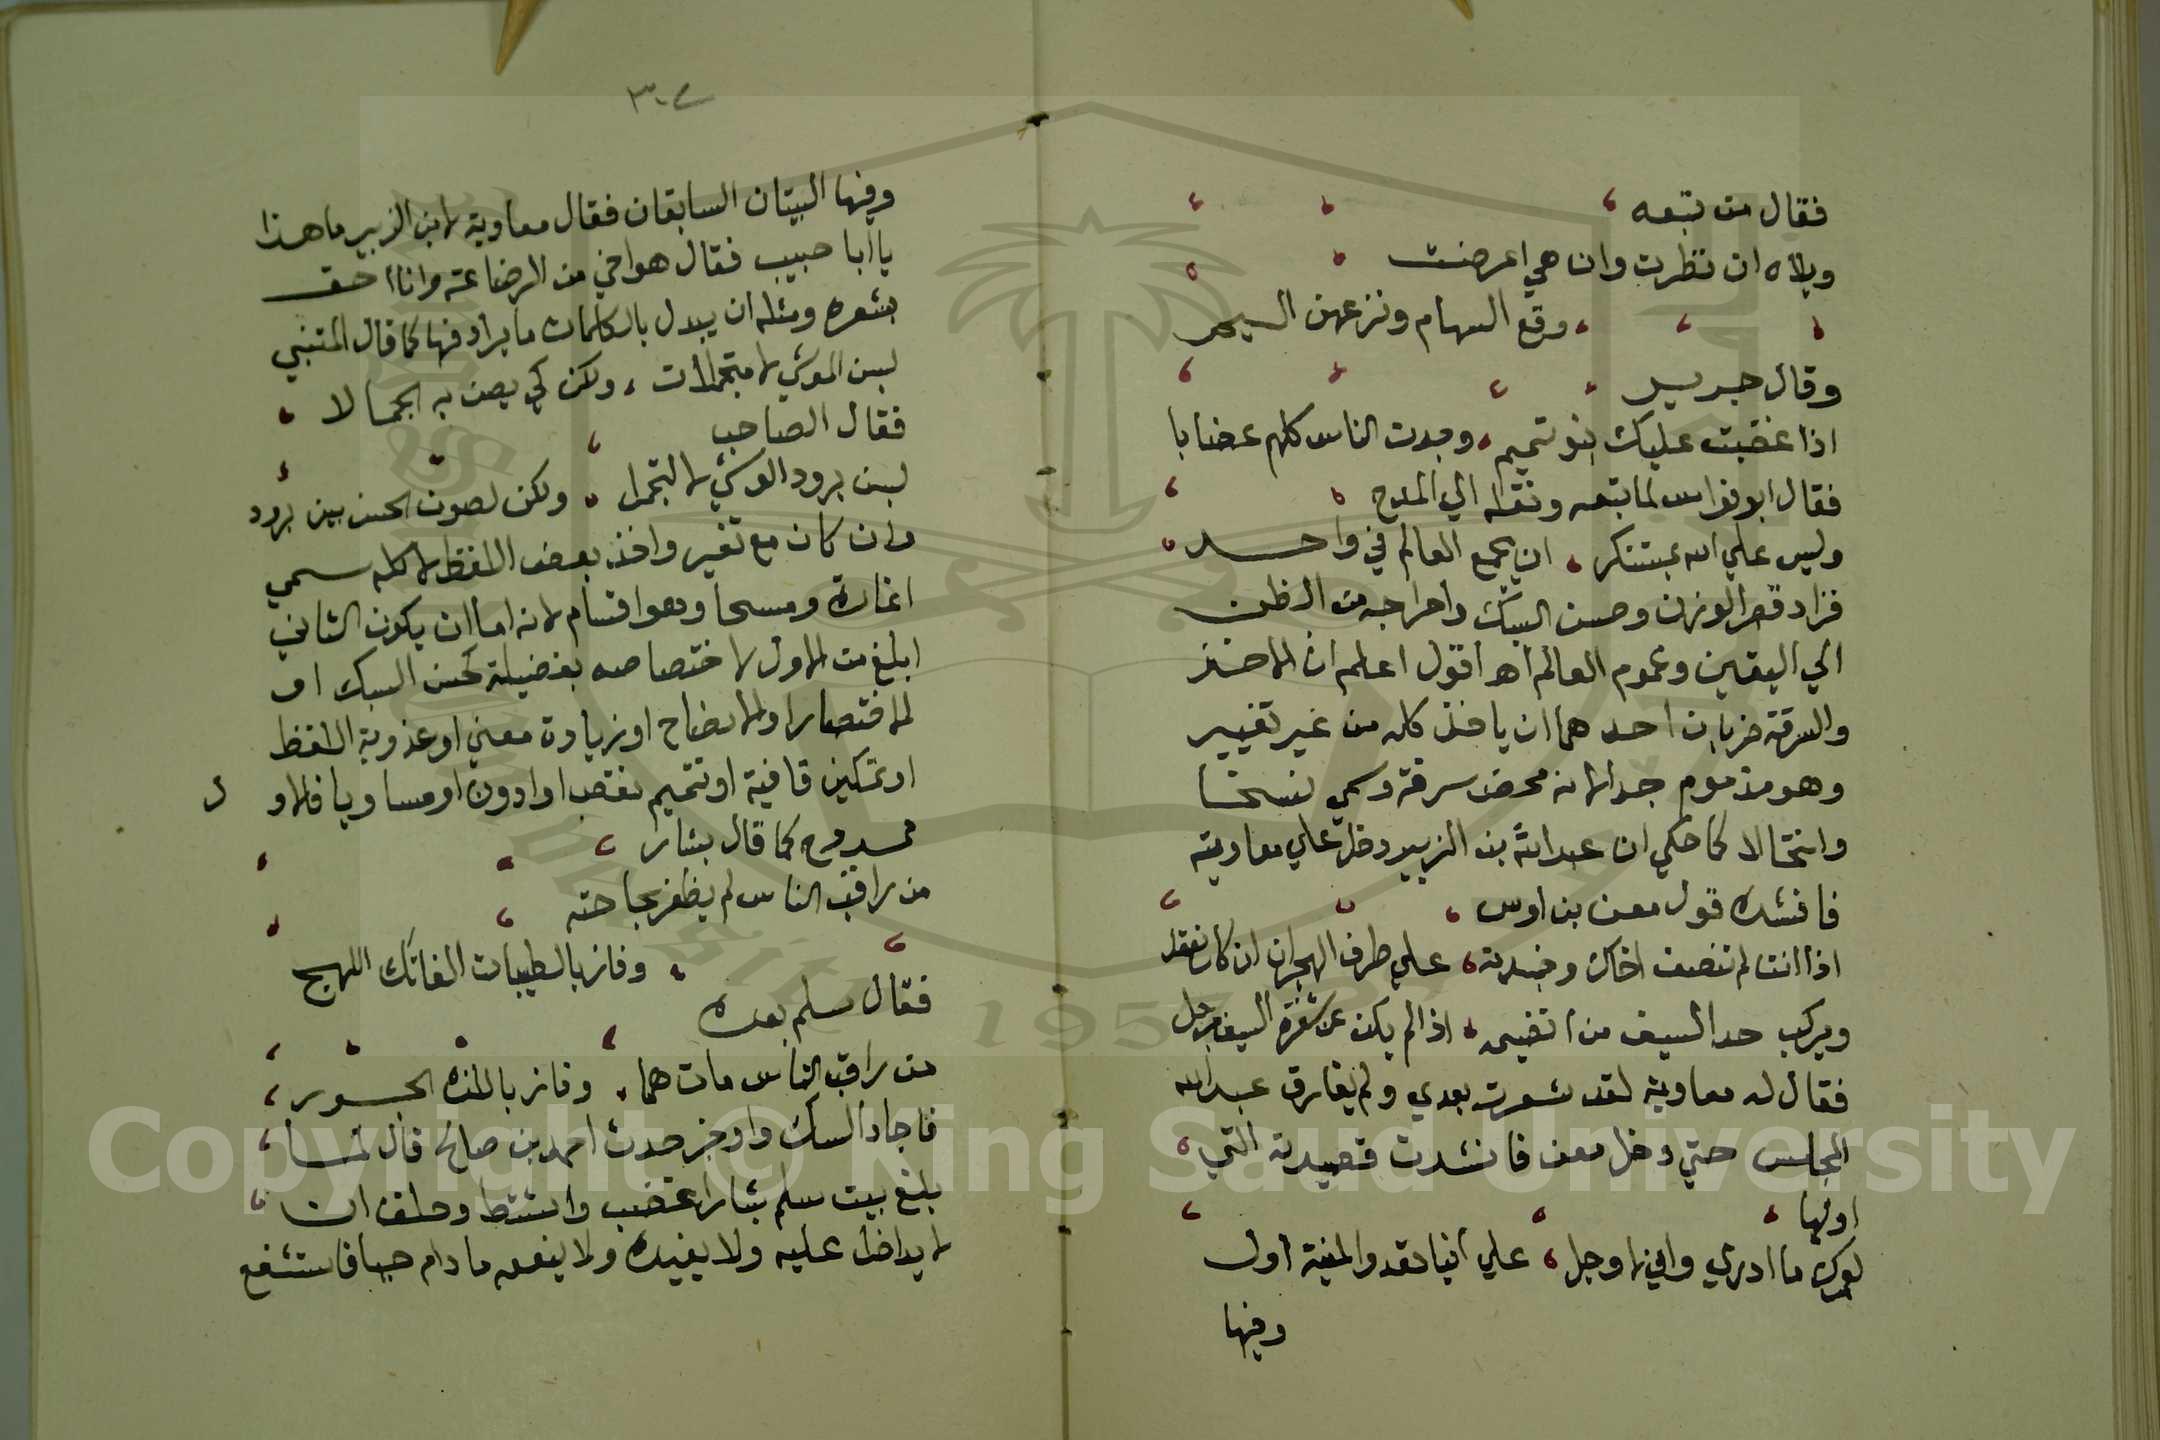 فقال من تبعه
ويلاه ان نظرت وان هي اعرضت
وقع السهام ونزعهن اليم
وقال جرير
اذا غضبت عليك بنو تميم وجدت الناس كلهم غضابا
فقال ابو نواس لما تبعه ونقله الي المدح
وليس علي الله بمستنكر ان يجمع العالم في واحد
فزاد قصر الوزن وحسن السبك واخراجه من الظن
الي اليقين وعموم العالم اهـ اقول اعلم ان الاخذ
والسرقة ضربان احدهما ان ياخذ كله من غير تغيير
وهو مذموم جدا لانه محض سرقة وسمي نسخا
وانتحالا كما حكي ان عبد الله بن الزبير دخل علي معاوية
فانشده قول معن بن اوس
اذا انت لم تنصف اخاك وجدته علي طرف الهجران ان كان يعقل
ويركب حد السيف من ان تضيمه اذا لم يكن عن شفرة السيف مزحل
فقال له معاوية لقد شعرت بعدي ولم يفارق عبد الله
المجلس حتي دخل معن فانشدت قصيدته التي
اولها
لعمرك ما ادري واني لاوجل علي اينا تعدو المنية اول
وفيها
٣٠٧
وفيها البيتان السابقان فقال معاوية لابن الزبير ما هذا
يا ابا حبيب فقال هو اخي من الرضاعة وانا احق
بشعره ومثله ان يبدل بالكلمات ما يرادفها كما قال المتنبي
لبسن الموشي لا متجملات ولكن كي يصن به الجمالا
فقال الصاحب
لبسن برود الوشي لا لتجمل ولكن لصون الحسن بين برود
وان كان مع تغيير واخذ بعض اللفظ لا كله سمي
اغارة ومسخا وهو اقسام لانه اما ان يكون الثاني
ابلغ من الاول لاختصاصه بفضيلة كحسن السبك او
الاختصار او الايضاح او زيادة معني او عذوبة اللفظ
او تمكين قافية او تتميم نقص او ادون او مساويا فالاو
ل
ممدوح كما قال بشار
من راقب الناس لم يظفر بحاجته
وفاز بالطيبات الفاتك اللهج
فقال سلم بعده
من راقب الناس مات هما وفاز باللذة الجسور
فاجاد السبك واوجز حدث احمد بن صالح قال لما
بلغ بيت سلم بشارا غضب واستشط وحلف ان
لا يداخل عليه ولا يفيده ولا ينفعه ما دام حيا فاستشفع
Copyright © King Saud University
1957